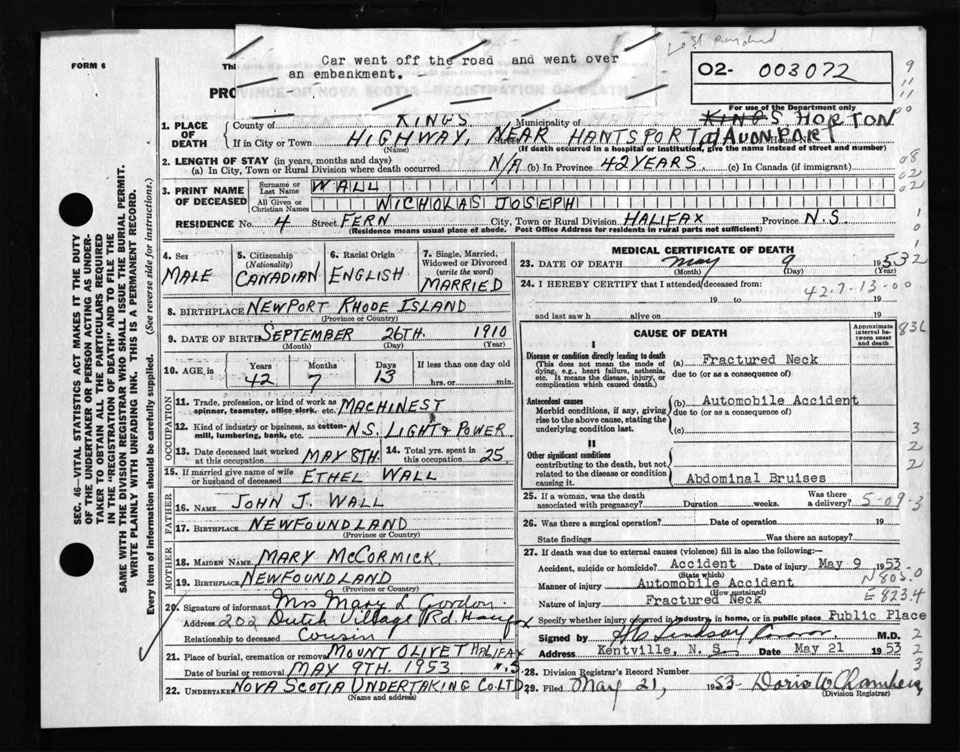 Lost Buried
FORM 6
Thi
Car went off the road and went over
an embankment.
O2- 003072
PROVINCE OF NOVA SCOTIA—REGISTRATION OF DEATH
For use of the Department only
1. PLACE OF DEATH
County of KINGS Municipality of KINGS HORTON
If in City or Town HIGHWAY, NEAR HANTSPORT at AVONPORT
(Name) Street House No.
(If death occurred in a hospital or institution, give the name instead of street and number)
2. LENGTH OF STAY (in years, months and days)
(a) In City, Town or Rural Division where death occurred N/A (b) In Province 42 YEARS. (c) In Canada (if immigrant)
3. PRINT NAME OF DECEASED
Surname or Last Name WALL
All Given or Christian Names NICHOLAS JOSEPH
RESIDENCE No. 4 Street FERN City, Town or Rural Division HALIFAX Province N.S.
(Residence means usual place of abode. Post Office Address for residents in rural parts not sufficient)
4. Sex MALE
5. Citizenship (Nationality) CANADIAN
6. Racial Origin ENGLISH
7. Single, Married, Widowed or Divorced (write the word) MARRIED
8. BIRTHPLACE NEWPORT RHODE ISLAND
(Province or Country)
9. DATE OF BIRTH SEPTEMBER 26TH. 1910
(Month) (Day) (Year)
10. AGE, in Years 42 Months 7 Days 13 If less than one day old
hrs. or min.
OCCUPATION
11. Trade, profession, or kind of work as spinner, teamster, office clerk, etc. MACHINEST
12. Kind of industry or business, as cotton-mill, lumbering, bank, etc. N.S. LIGHT & POWER
13. Date deceased last worked at this occupation MAY 8TH. 14. Total yrs. spent in this occupation 25.
15. If married give name of wife or husband of deceased ETHEL WALL
FATHER
16. NAME JOHN J. WALL
17. BIRTHPLACE NEWFOUNDLAND
(Province or Country)
MOTHER
18. MAIDEN NAME MARY MCCORMICK
19. BIRTHPLACE NEWFOUNDLAND
(Province or Country)
20. Signature of informant Mrs Mary L Gordon
Address 202 Dutch Village Rd. Halifax
Relationship to deceased Cousin
21. Place of burial, cremation or removal MOUNT OLIVET HALIFAX N.S.
Date of burial or removal MAY 9TH. 1953
22. UNDERTAKER NOVA SCOTIA UNDERTAKING CO. LTD
(Name and address)
MEDICAL CERTIFICATE OF DEATH
23. DATE OF DEATH May 9 1953
(Month) (Day) (Year)
24. I HEREBY CERTIFY that I attended deceased from:
19 to 19
42-7-13-00
and last saw h alive on 19
CAUSE OF DEATH
Approximate interval between onset and death
I
Disease or condition directly leading to death
(This does not mean the mode of dying, e.g., heart failure, asthenia, etc. It means the disease, injury, or complication which caused death.)
(a) Fractured Neck
due to (or as a consequence of)
Antecedent causes
Morbid conditions, if any, giving rise to the above cause, stating the underlying condition last.
(b) Automobile Accident
due to (or as a consequence of)
(c)
II
Other significant conditions
contributing to the death, but not related to the disease or condition causing it.
Abdominal Bruises
25. If a woman, was the death associated with pregnancy? Duration weeks. Was there a delivery? 5-09-3
26. Was there a surgical operation? Date of operation 19
State findings Was there an autopsy?
27. If death was due to external causes (violence) fill in also the following:—
Accident, suicide or homicide? Accident Date of injury May 9 1953
(State which) N805.0
Manner of injury Automobile Accident
(How sustained) E823.4
Nature of injury Fractured Neck
Specify whether injury occurred in industry, in home, or in public place Public Place
Signed by M.D.
Address Kentville, N. S. Date May 21 1953
28. Division Registrar's Record Number
29. Filed May 21, 1953 Doris W Chambers
(Division Registrar)
SEC. 46—VITAL STATISTICS ACT MAKES IT THE DUTY
OF THE UNDERTAKER OR PERSON ACTING AS UNDER-
TAKER TO OBTAIN ALL THE PARTICULARS REQUIRED
IN THE "REGISTRATION OF DEATH" AND TO FILE THE
SAME WITH THE DIVISION REGISTRAR WHO SHALL ISSUE THE BURIAL PERMIT.
WRITE PLAINLY WITH UNFADING INK. THIS IS A PERMANENT RECORD.
Every item of information should be carefully supplied. (See reverse side for instructions.)